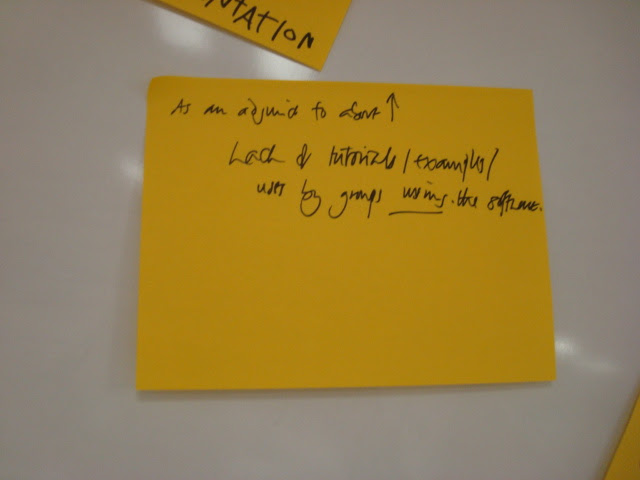 NTATION
As an adjunct to above ↑
Lack of tutorials/examples/
uses by groups using the software.